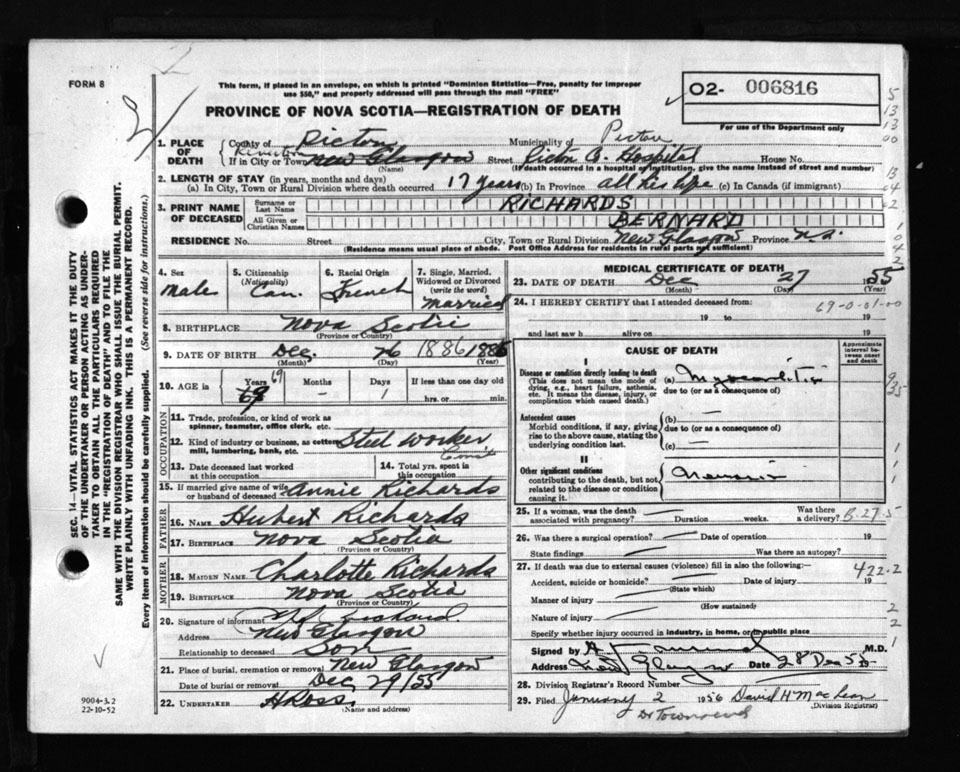 FORM 8
This form, if placed in an envelope, on which is printed "Dominion Statistics—Free, penalty for improper
use $50," and properly addressed will pass through the mail "FREE"
PROVINCE OF NOVA SCOTIA—REGISTRATION OF DEATH
O2- 006816
For use of the Department only
1. PLACE OF DEATH
County of Pictou Municipality of Pictou
If in City or Town New Glasgow Street Pictou Co. Hospital House No.
(Name) (If death occurred in a hospital or institution, give the name instead of street and number)
2. LENGTH OF STAY (in years, months and days)
(a) In City, Town or Rural Division where death occurred 17 years (b) In Province all his life (c) In Canada (if immigrant)
3. PRINT NAME OF DECEASED
Surname or Last Name RICHARDS
All Given or Christian Names BERNARD
RESIDENCE No. Street City, Town or Rural Division New Glasgow Province N.S.
(Residence means usual place of abode. Post Office Address for residents in rural parts not sufficient)
4. Sex Male
5. Citizenship (Nationality) Can.
6. Racial Origin French
7. Single, Married, Widowed or Divorced (write the word) Married
8. BIRTHPLACE Nova Scotia
(Province or Country)
9. DATE OF BIRTH Dec. 26 1886 1886
(Month) (Day) (Year)
10. AGE in Years 69 Months – Days 1 If less than one day old hrs. or min.
OCCUPATION
11. Trade, profession, or kind of work as spinner, teamster, office clerk, etc.
12. Kind of industry or business, as cotton mill, lumbering, bank, etc. Steel Worker
13. Date deceased last worked at this occupation
14. Total yrs. spent in this occupation
15. If married give name of wife or husband of deceased Annie Richards
FATHER
16. NAME Hubert Richards
17. BIRTHPLACE Nova Scotia
(Province or Country)
MOTHER
18. MAIDEN NAME Charlotte Richards
19. BIRTHPLACE Nova Scotia
(Province or Country)
20. Signature of informant
Address New Glasgow
Relationship to deceased Son
21. Place of burial, cremation or removal New Glasgow
Date of burial or removal Dec 29/55
22. UNDERTAKER H Ross
(Name and address)
MEDICAL CERTIFICATE OF DEATH
23. DATE OF DEATH Dec 27 1955
(Month) (Day) (Year)
24. I HEREBY CERTIFY that I attended deceased from:
69-0-01-00
19 to 19
and last saw h alive on 19
CAUSE OF DEATH
Approximate interval between onset and death
I
Disease or condition directly leading to death
(This does not mean the mode of dying, e.g., heart failure, asthenia, etc. It means the disease, injury, or complication which caused death.)
(a) Myocarditis
due to (or as a consequence of)
Antecedent causes
Morbid conditions, if any, giving rise to the above cause, stating the underlying condition last.
(b) —
due to (or as a consequence of)
(c) —
II
Other significant conditions
contributing to the death, but not related to the disease or condition causing it.
25. If a woman, was the death associated with pregnancy? Duration weeks. Was there a delivery? B-27-5
26. Was there a surgical operation? Date of operation 19
State findings Was there an autopsy?
27. If death was due to external causes (violence) fill in also the following:— 422-2
Accident, suicide or homicide? Date of injury 19
(State which)
Manner of injury
(How sustained)
Nature of injury
Specify whether injury occurred in industry, in home, or in public place
Signed by M.D.
Address New Glasgow Date 28 Dec 55
28. Division Registrar's Record Number
29. Filed January 2 1956 David H MacLean
(Division Registrar)
Dr Townsend
SEC. 14—VITAL STATISTICS ACT MAKES IT THE DUTY
OF THE UNDERTAKER OR PERSON ACTING AS UNDER-
TAKER TO OBTAIN ALL THE PARTICULARS REQUIRED
IN THE "REGISTRATION OF DEATH" AND TO FILE THE
SAME WITH THE DIVISION REGISTRAR WHO SHALL ISSUE THE BURIAL PERMIT.
WRITE PLAINLY WITH UNFADING INK. THIS IS A PERMANENT RECORD.
Every item of information should be carefully supplied. (See reverse side for instructions.)
9004-3.2
22-10-52